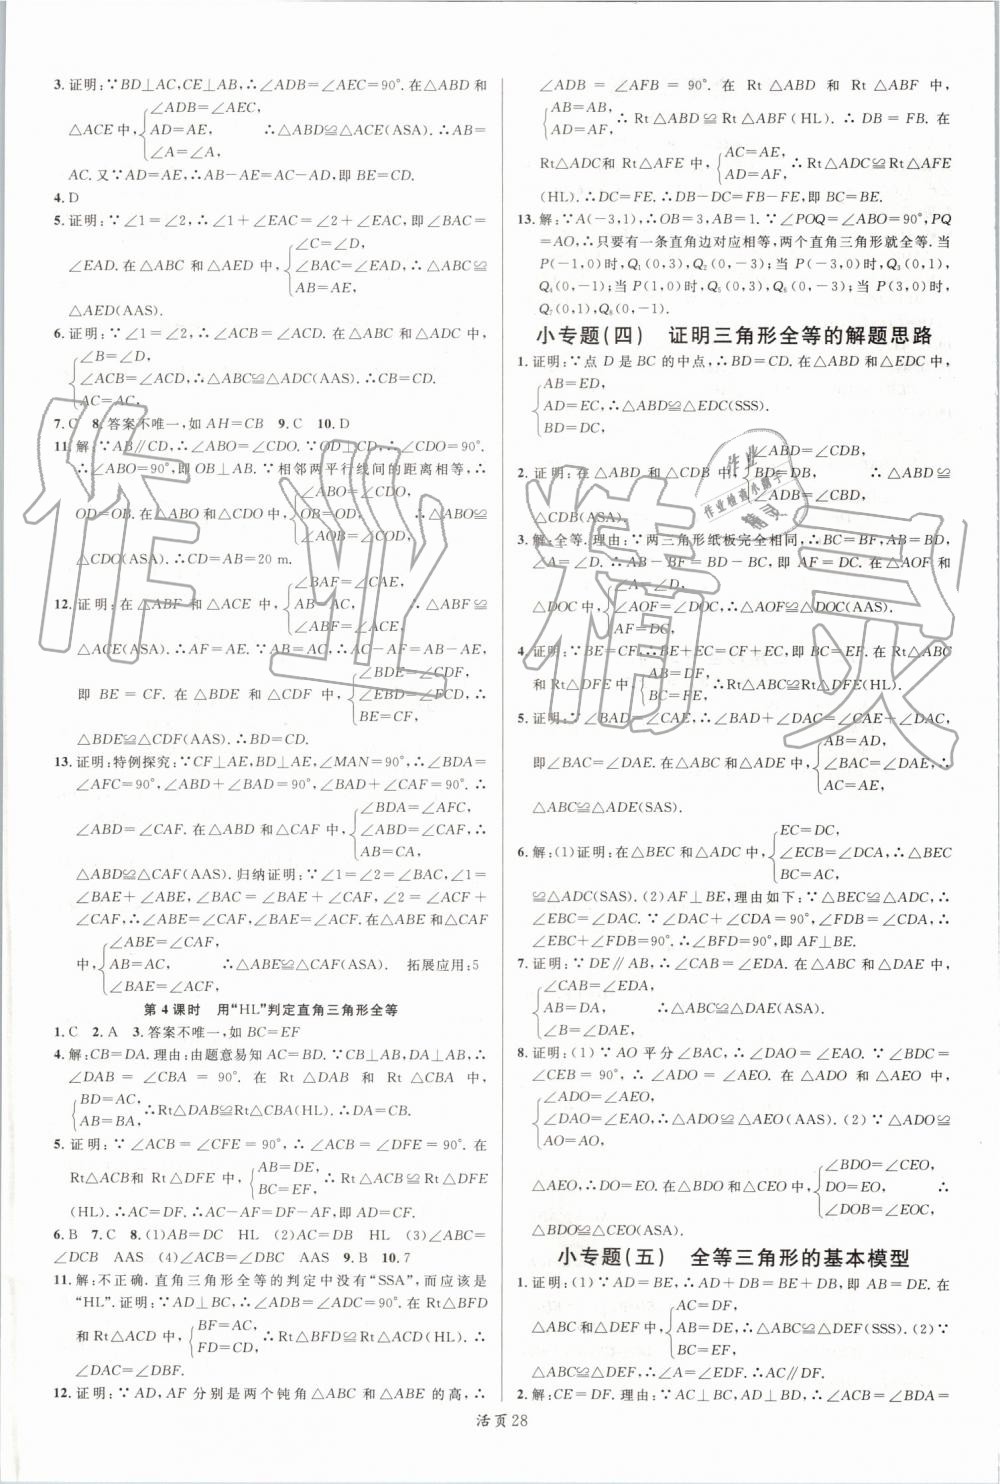 3. 证明:∵BD⊥AC,CE⊥AB,∴∠ADB=∠AEC=90°. 在△ABD和
△ACE中,{∠ADB=∠AEC, AD=AE, ∠A=∠A, ∴△ABD≌△ACE(ASA). ∴AB=
AC. 又∵AD=AE,∴AB-AE=AC-AD,即BE=CD.
4. D
5. 证明:∵∠1=∠2,∴∠1+∠EAC=∠2+∠EAC,即∠BAC=
∠EAD. 在△ABC和△AED中,{∠C=∠D, ∠BAC=∠EAD, AB=AE, ∴△ABC≌
△AED(AAS).
6. 证明:∵∠1=∠2,∴∠ACB=∠ACD. 在△ABC和△ADC中,
{∠B=∠D, ∠ACB=∠ACD, AC=AC, ∴△ABC≌△ADC(AAS). ∴CB=CD.
7. C 8. 答案不唯一,如AH=CB 9. C 10. D
11. 解:∵AB∥CD,∴∠ABO=∠CDO. ∵OD⊥CD,∴∠CDO=90°.
∴∠ABO=90°,即OB⊥AB. ∵相邻两平行线间的距离相等,∴
OD=OB. 在△ABO和△CDO中,{∠ABO=∠CDO, OB=OD, ∠AOB=∠COD, ∴△ABO≌
△CDO(ASA). ∴CD=AB=20 m.
12. 证明:在△ABF和△ACE中,{∠BAF=∠CAE, AB=AC, ∠ABF=∠ACE, ∴△ABF≌
△ACE(ASA). ∴AF=AE. ∵AB=AC,∴AC-AF=AB-AE,
即BE=CF. 在△BDE和△CDF中,{∠BDE=∠CDF, ∠EBD=∠FCD, BE=CF, ∴
△BDE≌△CDF(AAS). ∴BD=CD.
13. 证明:特例探究:∵CF⊥AE,BD⊥AE,∠MAN=90°,∴∠BDA=
∠AFC=90°,∠ABD+∠BAD=90°,∠BAD+∠CAF=90°. ∴
∠ABD=∠CAF. 在△ABD和△CAF中,{∠BDA=∠AFC, ∠ABD=∠CAF, AB=CA, ∴
△ABD≌△CAF(AAS). 归纳证明:∵∠1=∠2=∠BAC,∠1
=∠BAE+∠ABE,∠BAC=∠BAE+∠CAF,∠2=∠FCA+
∠CAF,∴∠ABE=∠CAF,∠BAE=∠FCA. 在△ABE和△CAF
中,{∠ABE=∠CAF, AB=AC, ∠BAE=∠ACF, ∴△ABE≌△CAF(ASA). 拓展应用:5
第4课时 用“HL”判定直角三角形全等
1. C 2. A 3. 答案不唯一,如BC=EF
4. 解:CB=DA. 理由:由题意易知AC=BD. ∵CB⊥AB,DA⊥AB,
∴∠DAB=∠CBA=90°. 在Rt△DAB和Rt△CBA中,
{BD=AC, AB=BA, ∴Rt△DAB≌Rt△CBA(HL). ∴DA=CB.
5. 证明:∵∠ACB=∠CFE=90°,∴∠ACB=∠DFE=90°. 在
Rt△ACB和Rt△DFE中,{AB=DE, BC=EF, ∴Rt△ACB≌Rt△DFE
(HL). ∴AC=DF. ∴AC-AF=DF-AF,即AD=CF.
6. B 7. C 8. (1)AB=DC HL (2)AC=DB HL (3)∠ABC=
∠DCB AAS (4)∠ACB=∠DBC AAS 9. B 10. 7
11. 解:不正确. 直角三角形全等的判定中没有“SSA”,而应该是
“HL”. 证明:∵AD⊥BC,∴∠ADB=∠ADC=90°. 在Rt△BFD
和Rt△ACD中,{BF=AC, FD=CD, ∴Rt△BFD≌Rt△ACD(HL). ∴
∠DAC=∠DBF.
12. 证明:∵AD,AF分别是两个钝角△ABC和△ABE的高,∴
∠ADB=∠AFB=90°. 在Rt△ABD和Rt△ABF中,
{AB=AB, AD=AF, ∴Rt△ABD≌Rt△ABF(HL). ∴DB=FB. 在
Rt△ADC和Rt△AFE中,{AC=AE, AD=AF, ∴Rt△ADC≌Rt△AFE
(HL). ∴DC=FE. ∴DB-DC=FB-FE,即BC=BE.
13. 解:∵A(-3,1),∴OB=3,AB=1. ∵∠POQ=∠ABO=90°,PQ
=AO,∴只要有一条直角边对应相等,两个直角三角形就全等. 当
P(-1,0)时,Q₁(0,3),Q₂(0,-3);当P(-3,0)时,Q₃(0,1),
Q₄(0,-1);当P(1,0)时,Q₅(0,3),Q₆(0,-3);当P(3,0)时,
Q₇(0,1),Q₈(0,-1).
小专题(四) 证明三角形全等的解题思路
1. 证明:∵点D是BC的中点,∴BD=CD. 在△ABD和△EDC中,
{AB=ED, AD=EC, BD=DC, ∴△ABD≌△EDC(SSS).
2. 证明:在△ABD和△CDB中,{∠ABD=∠CDB, BD=DB, ∠ADB=∠CBD, ∴△ABD≌
△CDB(ASA).
3. 解:全等. 理由:∵两三角形纸板完全相同,∴BC=BF,AB=BD,
∠A=∠D. ∴AB-BF=BD-BC,即AF=DC. 在△AOF和
△DOC中,{∠A=∠D, ∠AOF=∠DOC, AF=DC, ∴△AOF≌△DOC(AAS).
4. 证明:∵BE=CF,∴BE+EC=CF+EC,即BC=EF. 在Rt△ABC
和Rt△DFE中,{AB=DF, BC=FE, ∴Rt△ABC≌Rt△DFE(HL).
5. 证明:∵∠BAD=∠CAE,∴∠BAD+∠DAC=∠CAE+∠DAC,
即∠BAC=∠DAE. 在△ABC和△ADE中,{AB=AD, ∠BAC=∠DAE, AC=AE, ∴
△ABC≌△ADE(SAS).
6. 解:(1)证明:在△BEC和△ADC中,{EC=DC, ∠ECB=∠DCA, BC=AC, ∴△BEC
≌△ADC(SAS). (2)AF⊥BE,理由如下:∵△BEC≌△ADC,∴
∠EBC=∠DAC. ∵∠DAC+∠CDA=90°,∠FDB=∠CDA,∴
∠EBC+∠FDB=90°. ∴∠BFD=90°,即AF⊥BE.
7. 证明:∵DE∥AB,∴∠CAB=∠EDA. 在△ABC和△DAE中,
{∠CAB=∠EDA, AB=DA, ∠B=∠DAE, ∴△ABC≌△DAE(ASA). ∴BC=AE.
8. 证明:(1)∵AO平分∠BAC,∴∠DAO=∠EAO. ∵∠BDC=
∠CEB=90°,∴∠ADO=∠AEO. 在△ADO和△AEO中,
{∠ADO=∠AEO, ∠DAO=∠EAO, AO=AO, ∴△ADO≌△AEO(AAS). (2)∵△ADO≌
△AEO,∴DO=EO. 在△BDO和△CEO中,{∠BDO=∠CEO, DO=EO, ∠DOB=∠EOC, ∴
△BDO≌△CEO(ASA).
小专题(五) 全等三角形的基本模型
1. 证明:(1)∵AD=BE,∴AD+DB=BE+DB,即AB=DE. 在
△ABC和△DEF中,{AC=DF, AB=DE, BC=EF, ∴△ABC≌△DEF(SSS). (2)∵
△ABC≌△DEF,∴∠A=∠EDF. ∴AC∥DF.
2. 解:CE=DF. 理由:∵AC⊥BC,AD⊥BD,∴∠ACB=∠BDA=
活页28
作业精灵